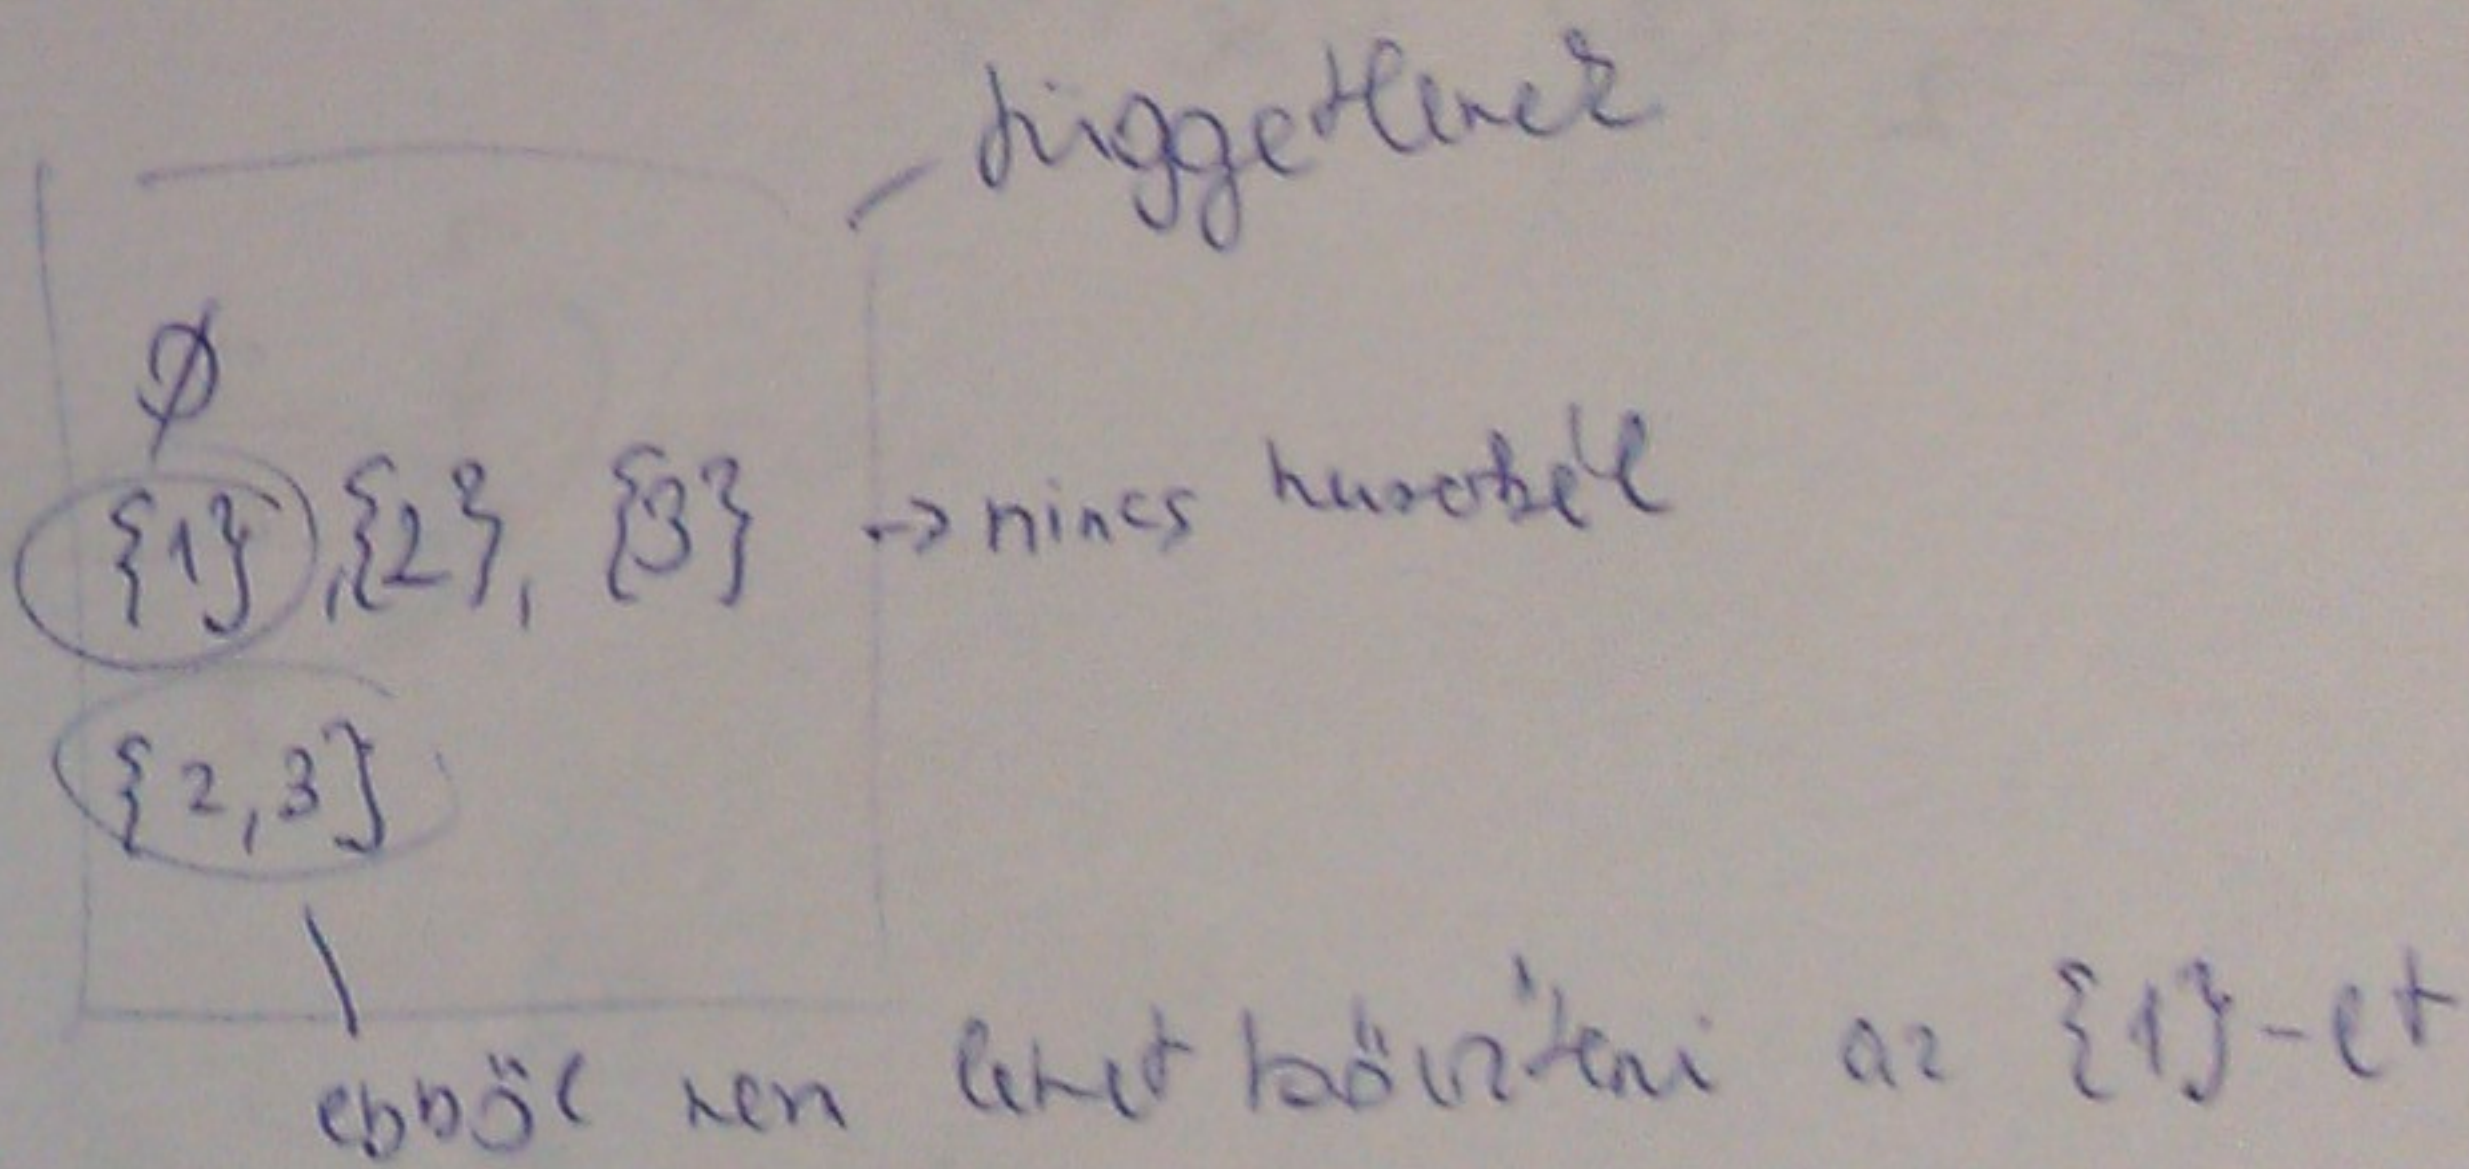 függetlenek
∅
{1}, {2}, {3} → nincs hurokél
{2,3}
ebből nem lehet bővíteni az {1}-et